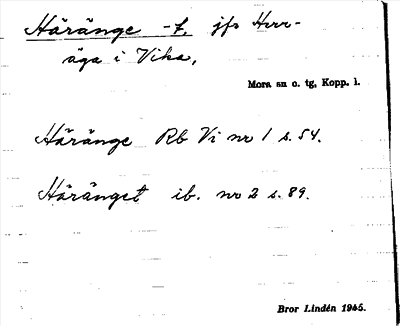 Häränge -t. jfr Herr-
äga i Vika,
Mora sn o. tg, Kopp. l.
Häränge Rb Vi nr 1 s. 54.
Häränget ib. nr 2 s. 89.
Bror Lindén 1945.